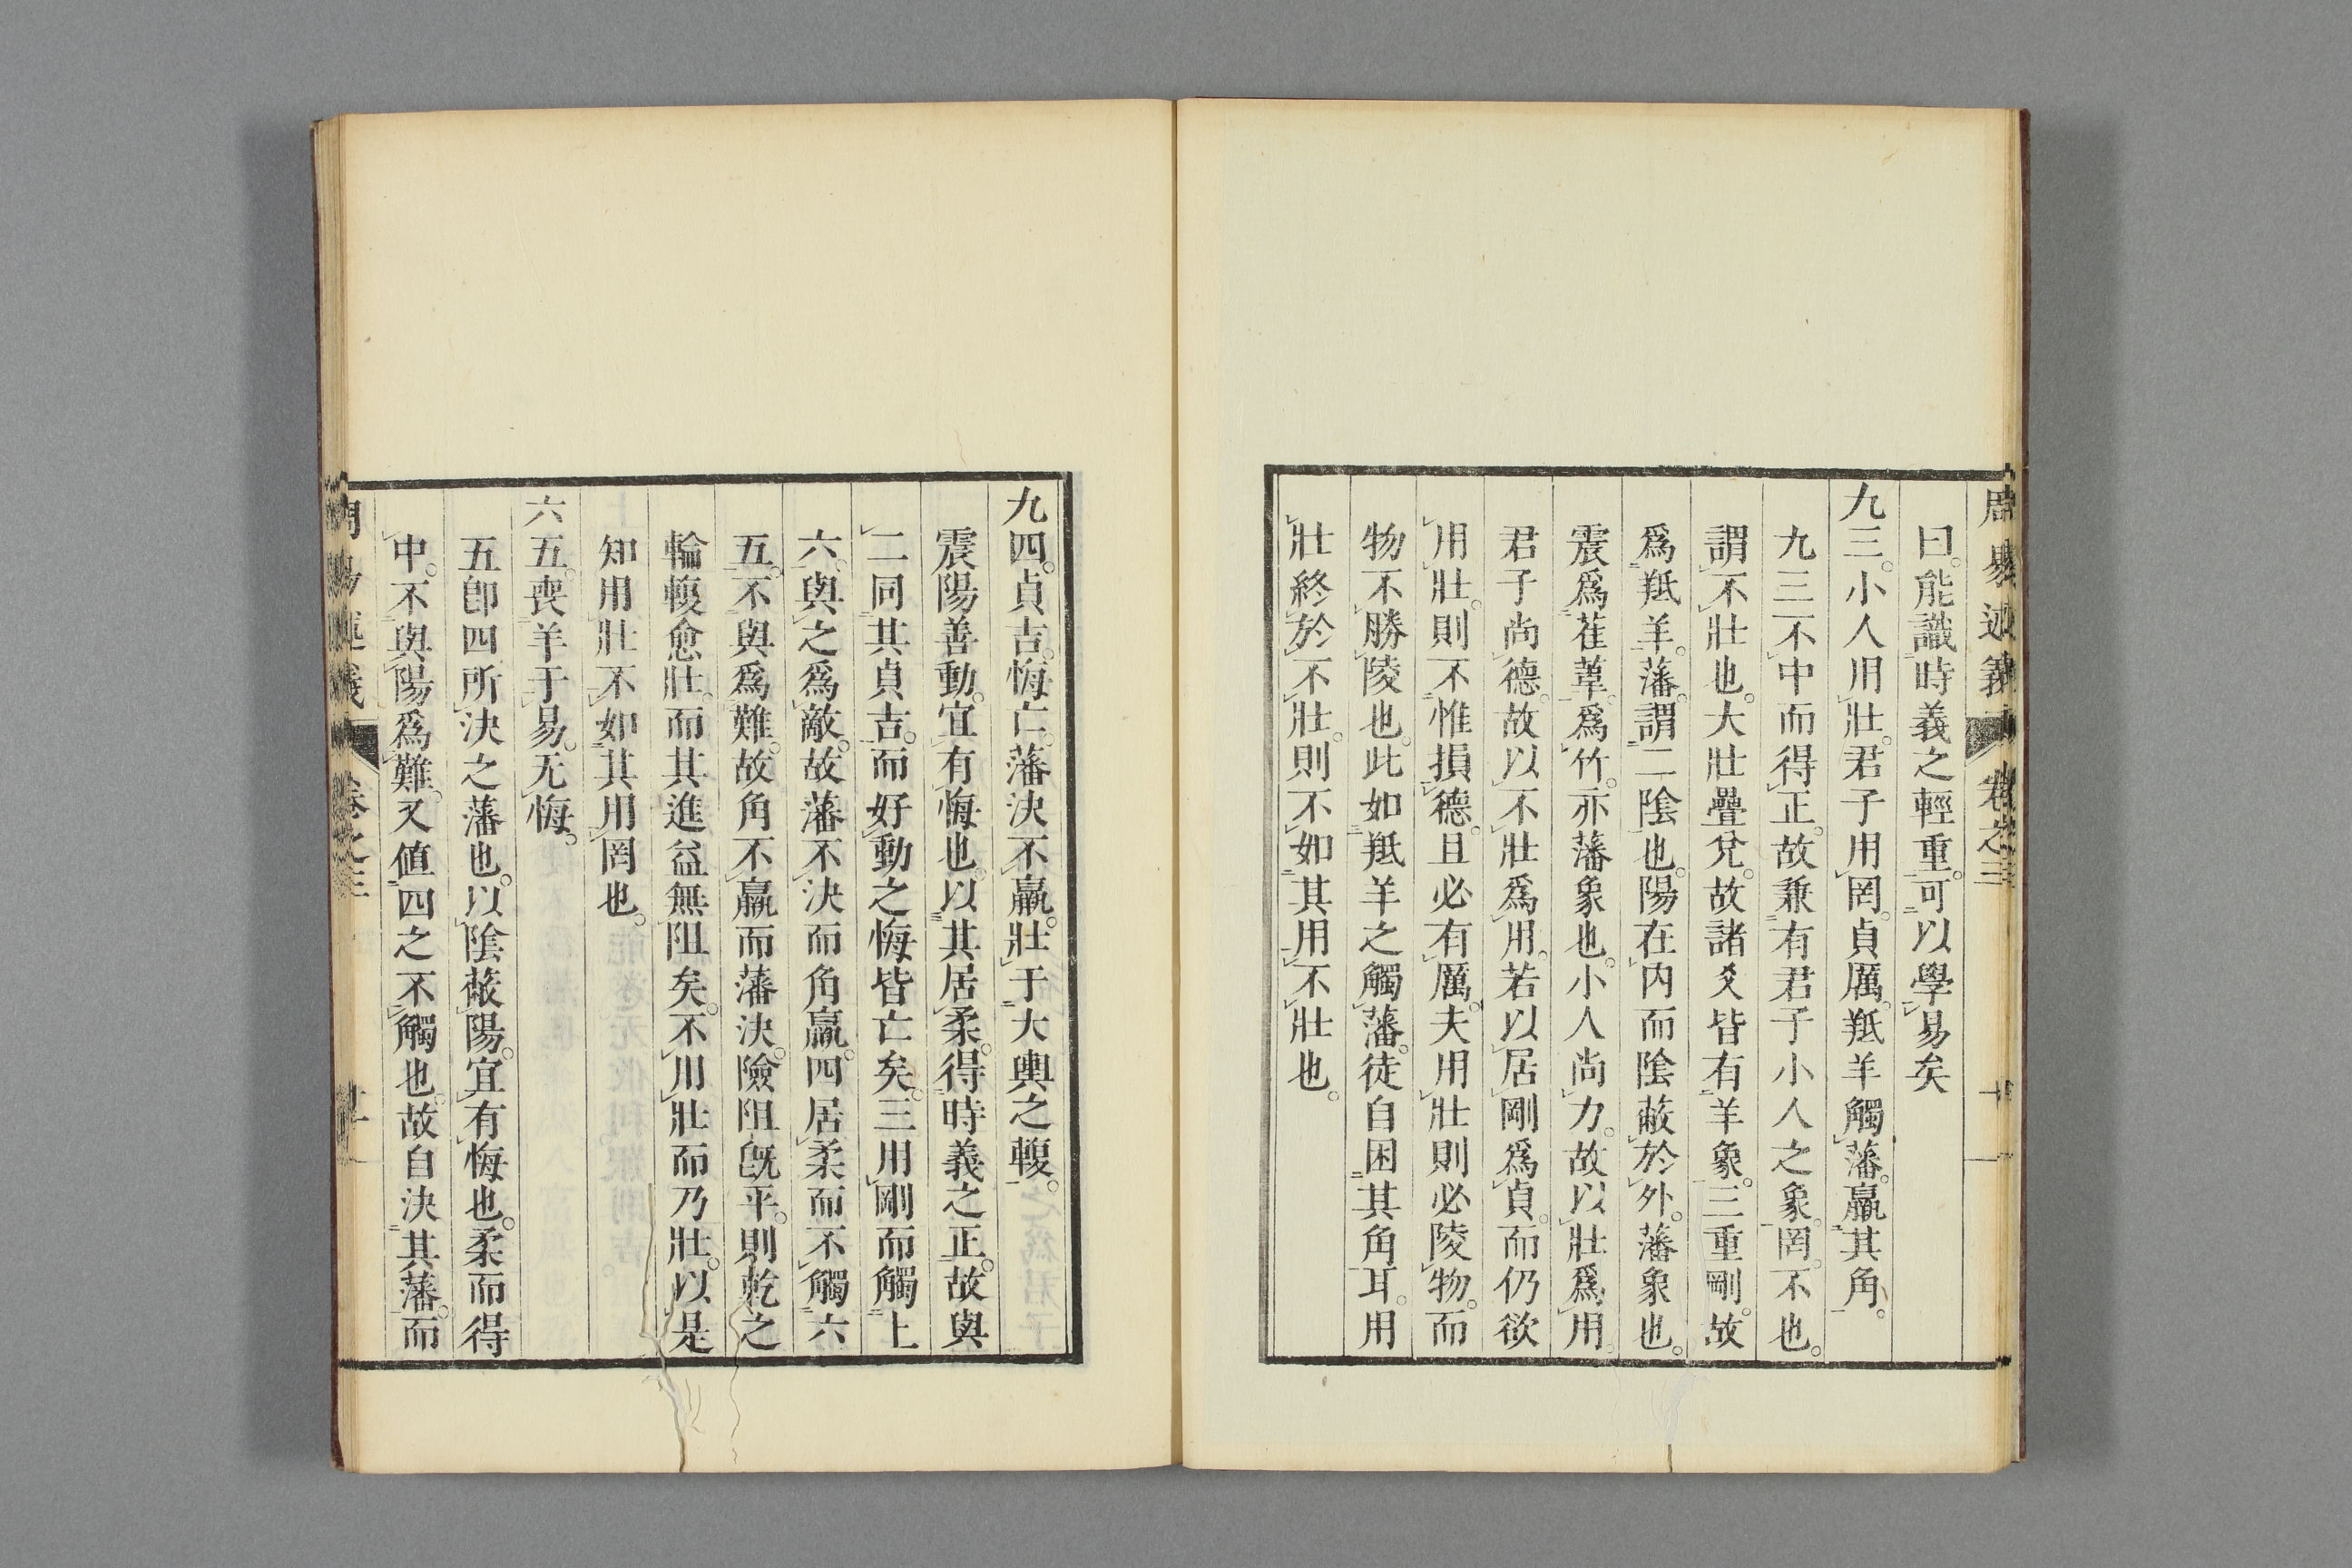 周易述義 卷之三
曰。能識時義之輕重。可以學易矣
九三。小人用壯。君子用罔。貞厲。羝羊觸藩。羸其角。
九三不中而得正。故兼有君子小人之象。罔。不也。
謂不壯也。大壯疊兌。故諸爻皆有羊象。三重剛。故
爲羝羊。藩。謂二陰也。陽在内而陰蔽於外。藩象也。
震爲萑葦。爲竹。亦藩象也。小人尚力。故以壯爲用。
君子尚德。故以不壯爲用。若以居剛爲貞。而仍欲
用壯。則不惟損德。且必有厲。夫用壯則必陵物。而
物不勝陵也。此如羝羊之觸藩。徒自困其角耳。用
壯終於不壯。則不如其用不壯也。
九四。貞吉。悔亡。藩決不羸。壯于大輿之輹。
震陽善動。宜有悔也。以其居柔。得時義之正。故與
二同其貞吉。而好動之悔皆亡矣。三用剛而觸上
六。與之爲敵。故藩不決而角羸。四居柔而不觸六
五。不與爲難。故角不羸而藩決。險阻旣平。則乾之
輪輹愈壯。而其進益無阻矣。不用壯而乃壯。以是
知用壯不如其用罔也。
六五。喪羊于易。无悔。
五卽四所決之藩也。以陰蔽陽。宜有悔也。柔而得
中。不與陽爲難。又值四之不觸也。故自決其藩。而
周易述義 卷之三